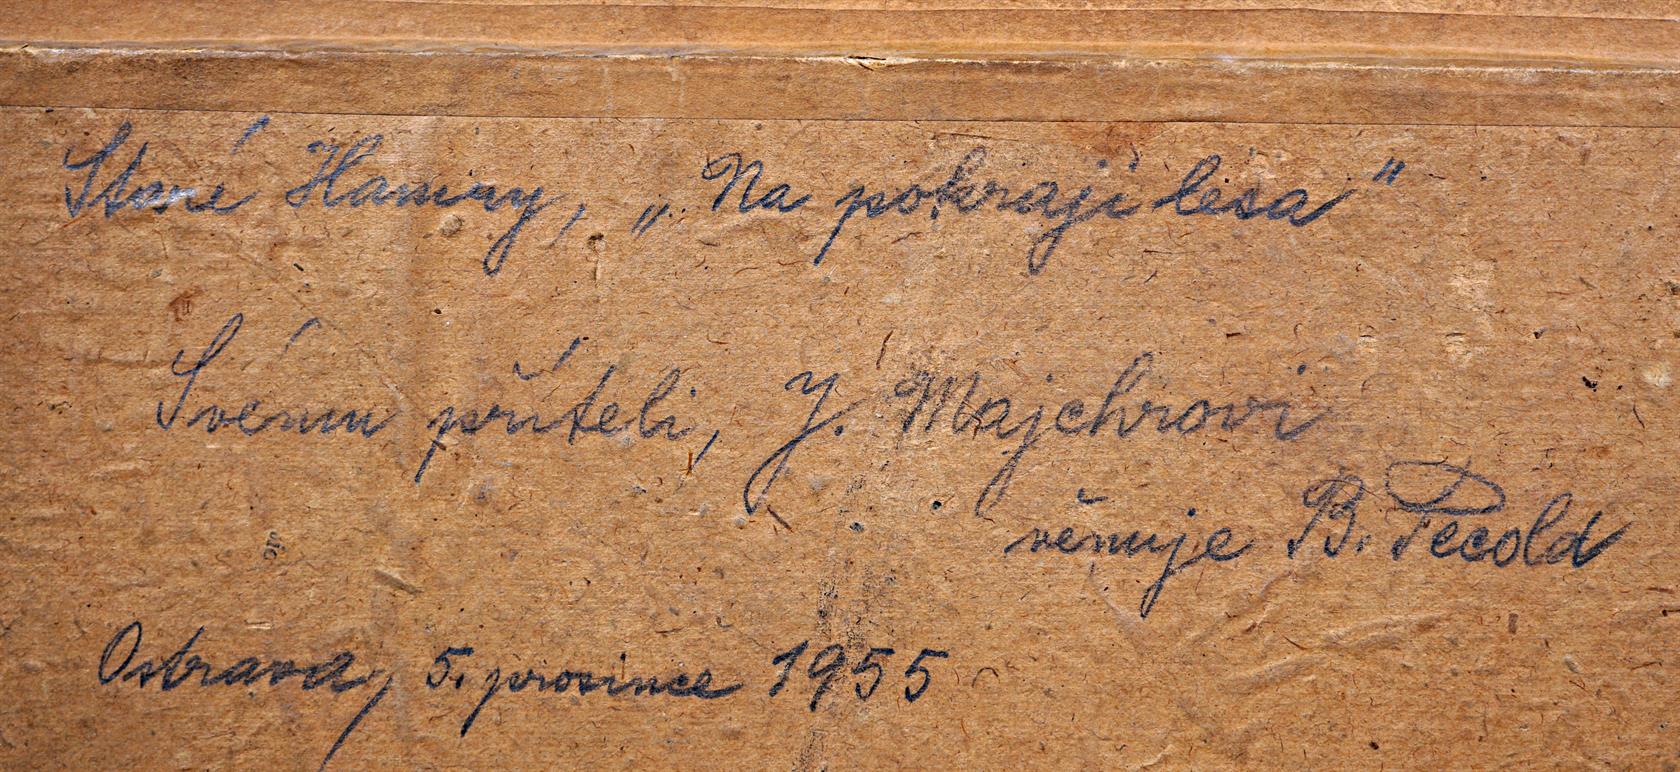 Staré Hamry, „Na pokraji lesa"
Svému příteli, J. Majchrovi
věnuje B. Pecold
Ostrava, 5. prosince 1955